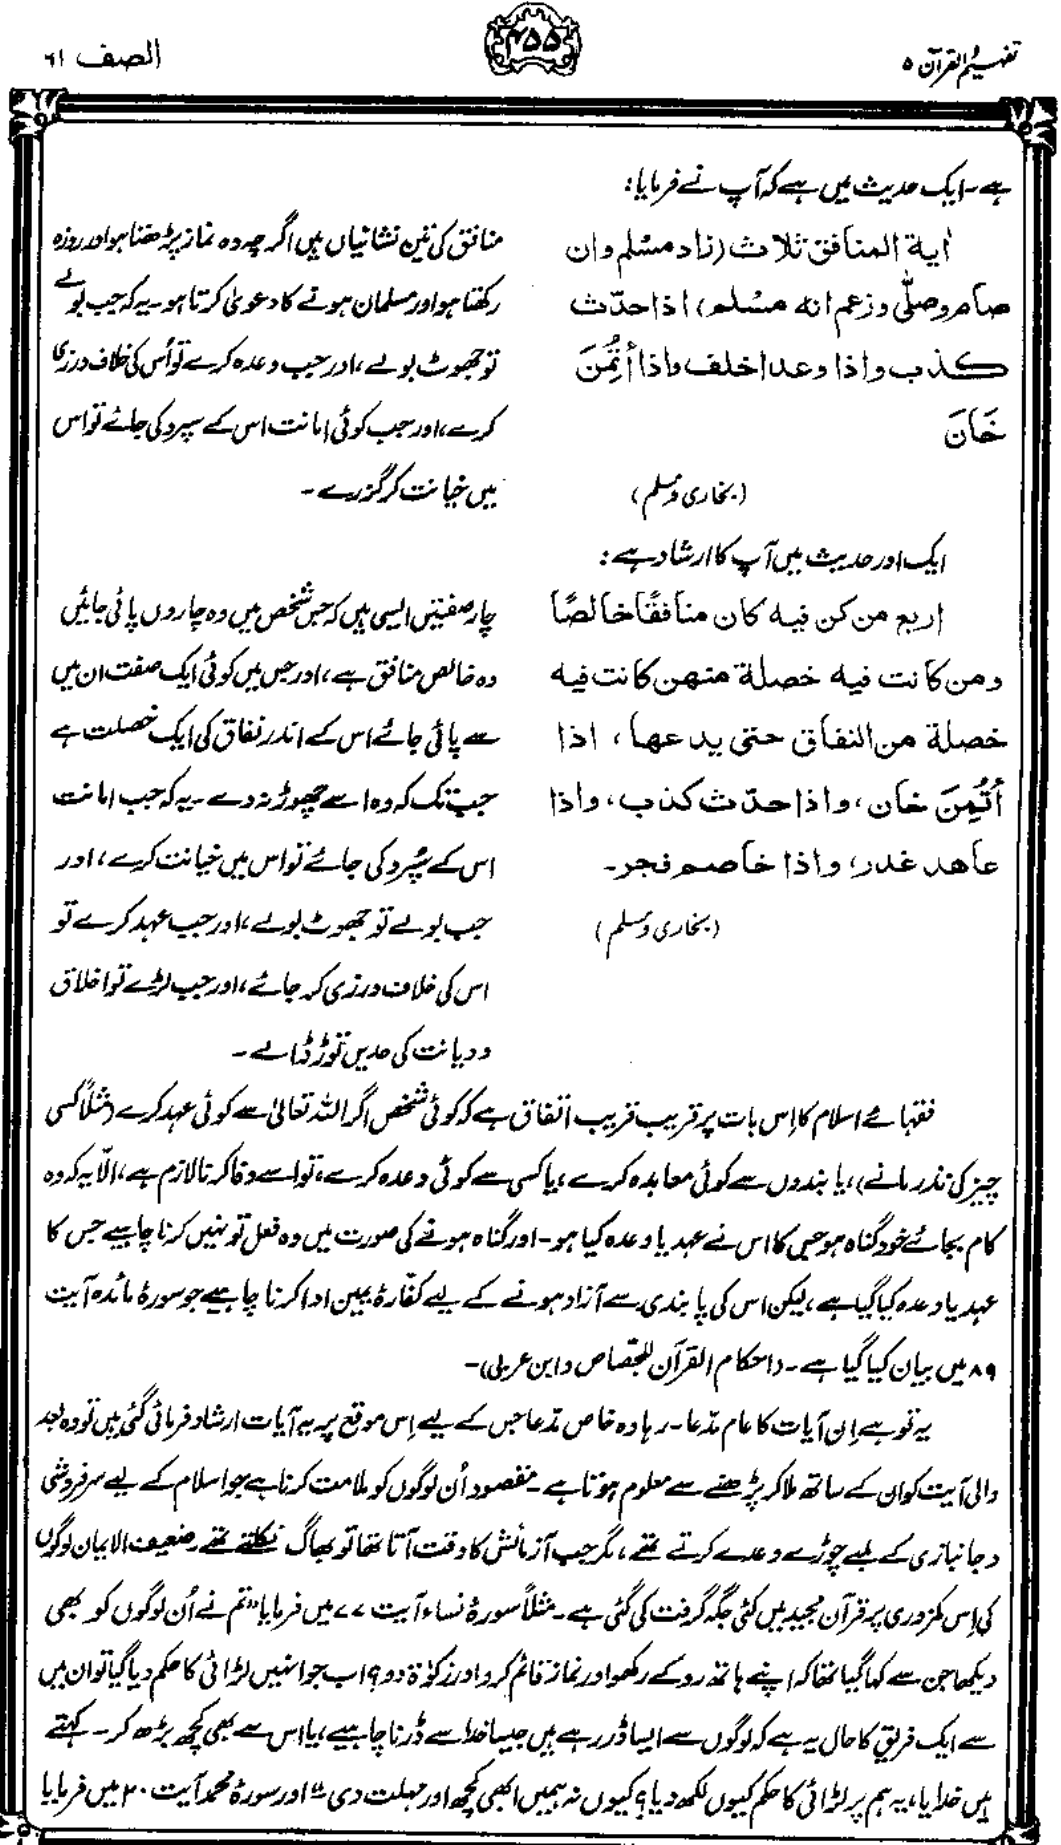 تفہیم القرآن ۵
۴۵۵
الصف ۶۱
ہے۔ ایک حدیث میں ہے کہ آپ نے فرمایا:
اٰیة المنافق ثلاث (زاد مسلم وان
صام وصلّٰی وزعم انه مسلم) اذا حدّث
کذب واذا وعد اخلف واذا أتُمِنَ
خَانَ
(بخاری و مسلم)
منافق کی تین نشانیاں ہیں اگرچہ وہ نماز پڑھتا ہو اور روزہ
رکھتا ہو اور مسلمان ہونے کا دعویٰ کرتا ہو۔ یہ کہ جب بولے
تو جھوٹ بولے، اور جب وعدہ کرے تو اُس کی خلاف ورزی
کرے، اور جب کوئی امانت اس کے سپرد کی جائے تو اس
میں خیانت کر گزرے۔
ایک اور حدیث میں آپ کا ارشاد ہے:
اربع من کن فیه کان منافقًا خالصًا
ومن کانت فیه خصلة منهن کانت فیه
خصلة من النفاق حتی یدعها، اذا
أتُمِنَ خان، واذا حدّث کذب، واذا
عاهد غدر، واذا خاصم فجر۔
(بخاری و مسلم)
چار صفتیں ایسی ہیں کہ جس شخص میں وہ چاروں پائی جائیں
وہ خالص منافق ہے، اور جس میں کوئی ایک صفت ان میں
سے پائی جائے اس کے اندر نفاق کی ایک خصلت ہے
جب تک کہ وہ اسے چھوڑ نہ دے۔ یہ کہ جب امانت
اس کے سپُرد کی جائے تو اس میں خیانت کرے، اور
جب بولے تو جھوٹ بولے، اور جب عہد کرے تو
اس کی خلاف ورزی کر جائے، اور جب لڑے تو اخلاق
و دیانت کی حدیں توڑ ڈالے۔
فقہائے اسلام کا اِس بات پر قریب قریب اتفاق ہے کہ کوئی شخص اگر اللہ تعالیٰ سے کوئی عہد کرے (مثلاً کسی
چیز کی نذر مانے)، یا بندوں سے کوئی معاہدہ کرے، یا کسی سے کوئی وعدہ کرے، تو اسے وفا کرنا لازم ہے، الّا یہ کہ وہ
کام بجائے خود گناہ ہو جس کا اس نے عہد یا وعدہ کیا ہو۔ اور گناہ ہونے کی صورت میں وہ فعل تو نہیں کرنا چاہیے جس کا
عہد یا وعدہ کیا گیا ہے، لیکن اس کی پابندی سے آزاد ہونے کے لیے کفّارۂ یمین ادا کرنا چاہیے جو سورۂ مائدہ آیت
۸۹ میں بیان کیا گیا ہے۔ (احکام القرآن للجصّاص و ابن عربی)۔
یہ تو ہے اِن آیات کا عام مدّعا۔ رہا وہ خاص مدّعا جس کے لیے اِس موقع پر یہ آیات ارشاد فرمائی گئی ہیں تو وہ بعد
والی آیت کو ان کے ساتھ ملا کر پڑھنے سے معلوم ہوتا ہے۔ مقصود اُن لوگوں کو ملامت کرنا ہے جو اسلام کے لیے سرفروشی
و جانبازی کے لمبے چوڑے وعدے کرتے تھے، مگر جب آزمائش کا وقت آتا تھا تو بھاگ نکلتے تھے۔ ضعیف الایمان لوگوں
کی اِس کمزوری پر قرآن مجید میں کئی جگہ گرفت کی گئی ہے۔ مثلاً سورۂ نساء آیت ۷۷ میں فرمایا "تم نے اُن لوگوں کو بھی
دیکھا جن سے کہا گیا تھا کہ اپنے ہاتھ روکے رکھو اور نماز قائم کرو اور زکوٰۃ دو؟ اب جو انہیں لڑائی کا حکم دیا گیا تو ان میں
سے ایک فریق کا حال یہ ہے کہ لوگوں سے ایسا ڈر رہے ہیں جیسا خدا سے ڈرنا چاہیے، یا اس سے بھی کچھ بڑھ کر۔ کہتے
ہیں خدایا، یہ ہم پر لڑائی کا حکم کیوں لکھ دیا؟ کیوں نہ ہمیں ابھی کچھ اور مہلت دی"۔ اور سورۂ محمد آیت ۲۰ میں فرمایا